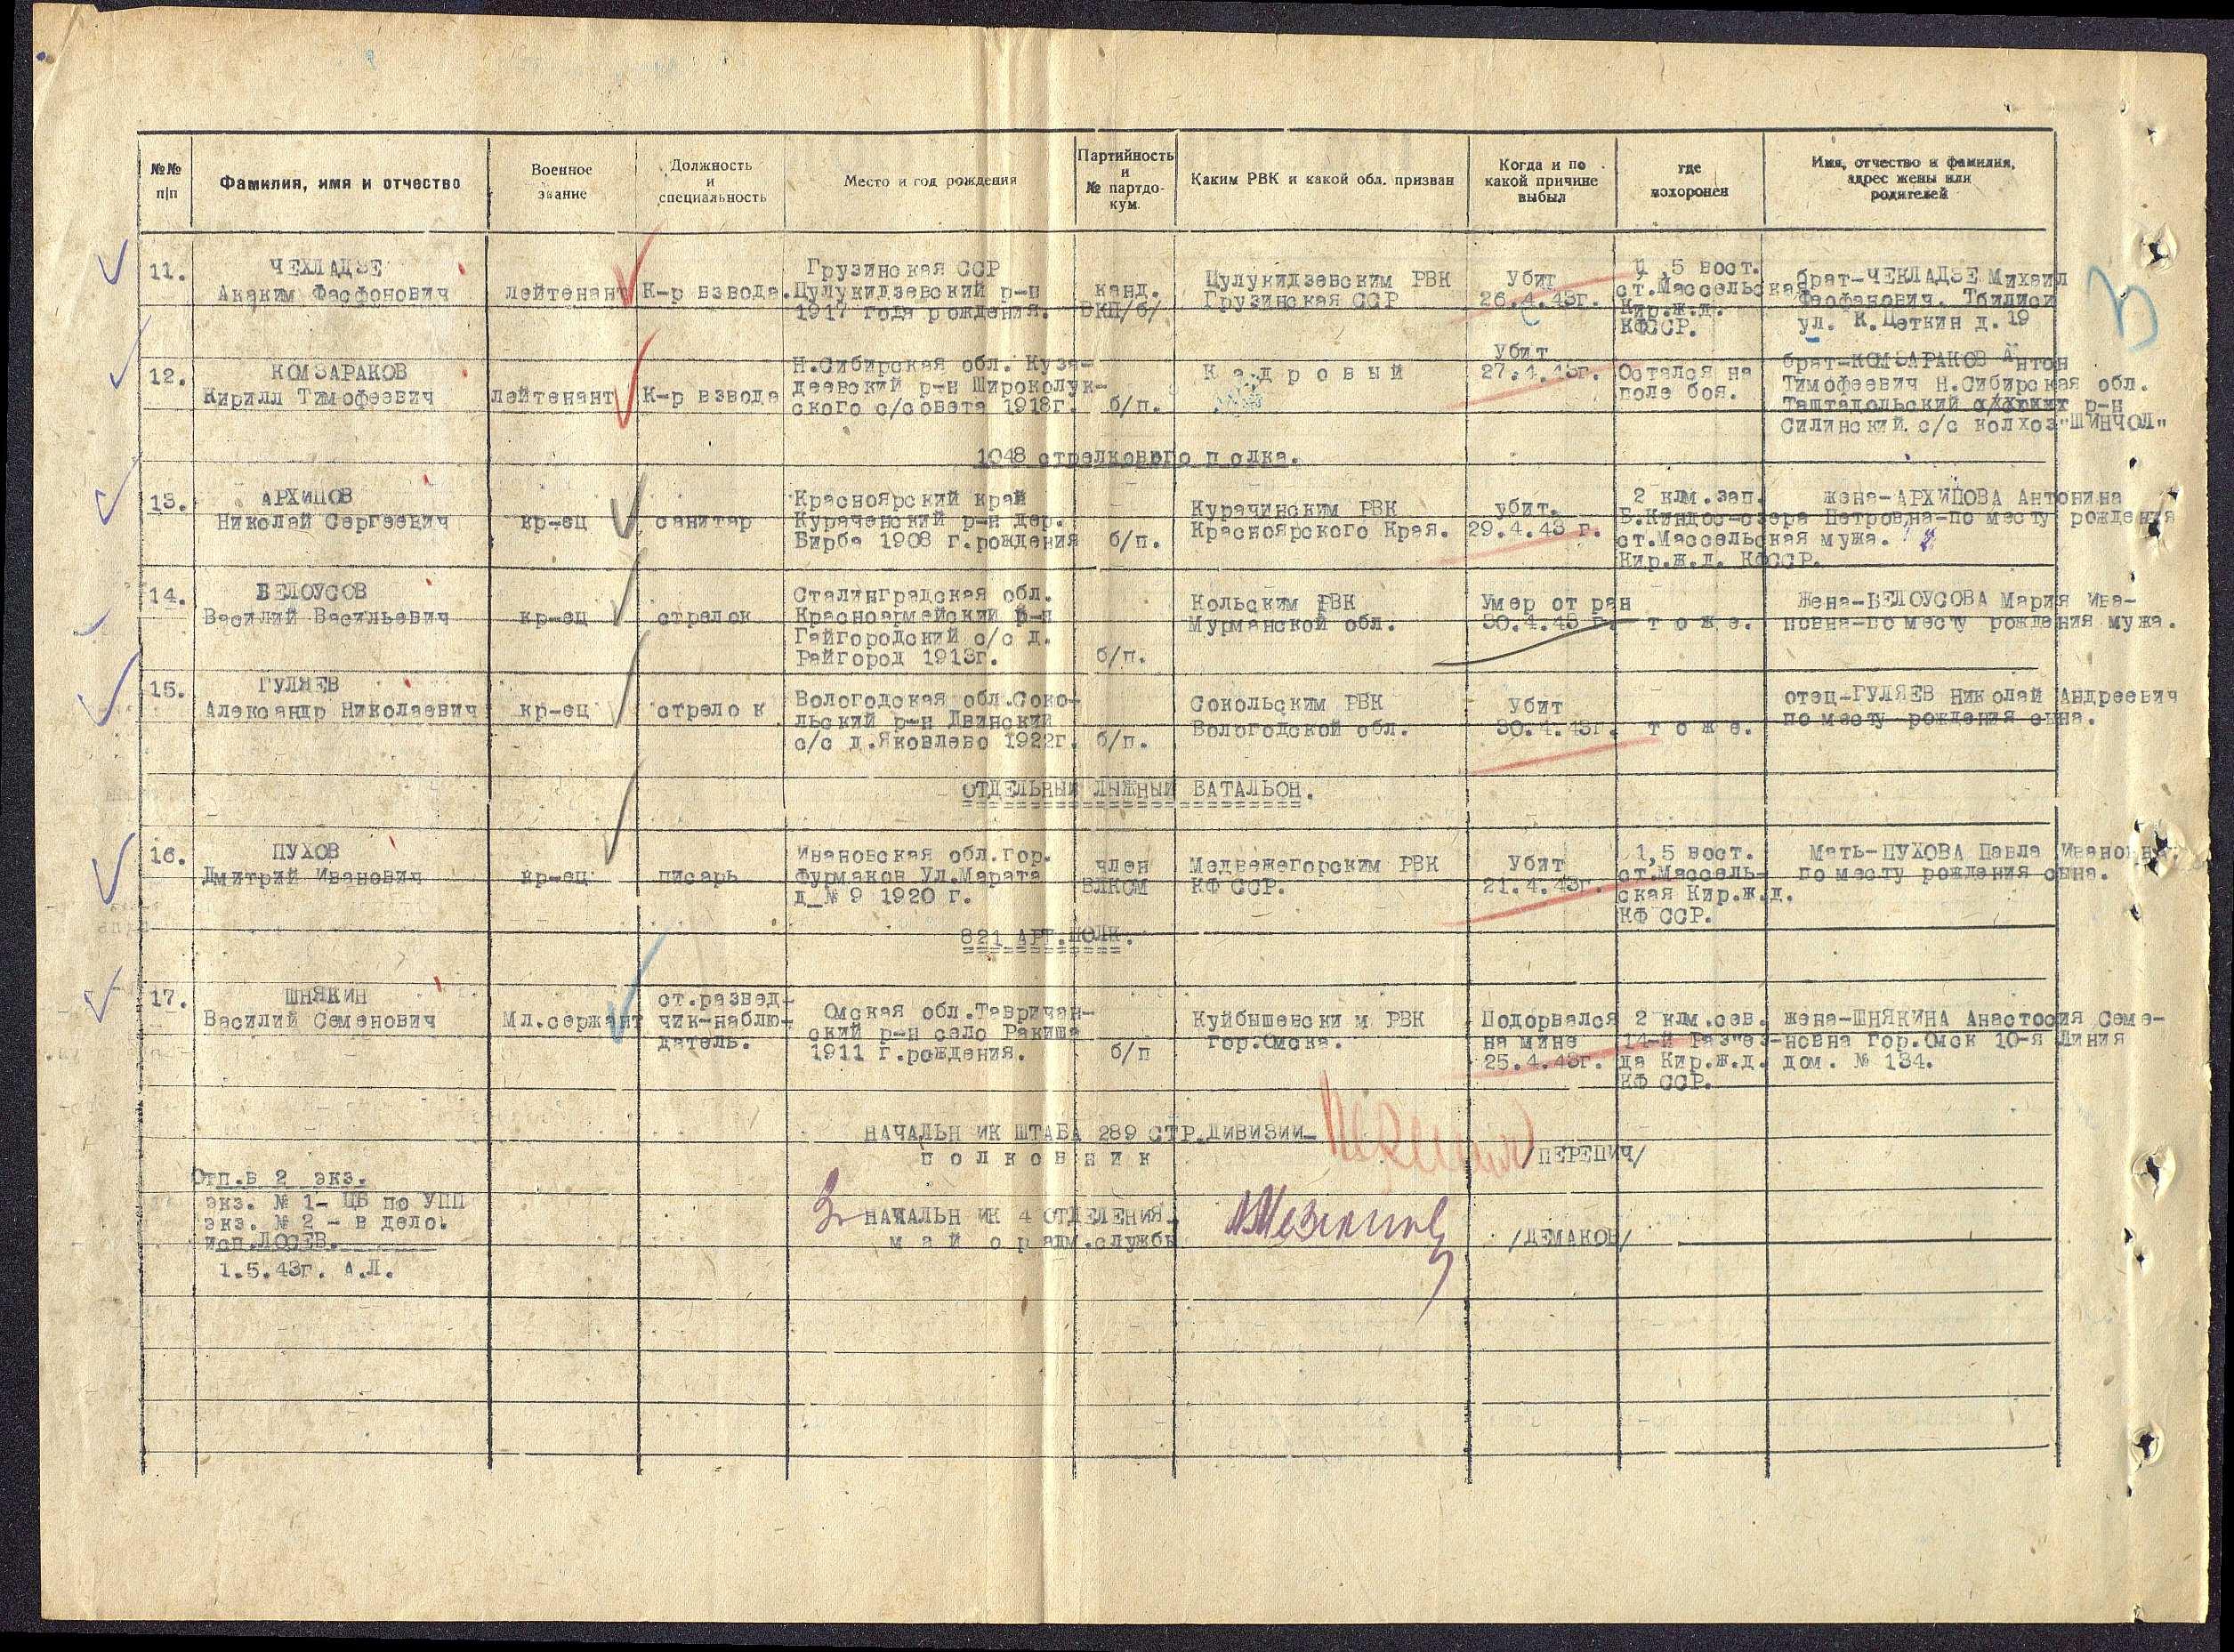 №№ п/п
Фамилия, имя и отчество
Военное звание
Должность и специальность
Место и год рождения
Партийность и № партдо- кум.
Каким РВК и какой обл. призван
Когда и по какой причине выбыл
где похоронен
Имя, отчество и фамилия, адрес жены или родителей
11.
ЧЕХЛАДЗЕ
Акаким Фасфонович
лейтенант
К-р взвода.
Грузинская ССР
Цулукидзевский р-н
1917 года рождения.
канд.
ВКП/б/
Цулукидзевским РВК
Грузинская ССР
Убит
26.4.43г.
1,5 вост.
ст.Массельская
Кир.ж.д.
КФССР.
брат-ЧЕКЛАДЗЕ Михаил
Фасфанович. Тбилиси
ул. К.Цеткин д.19
12.
КОМЗАРАКОВ
Кирилл Тимофеевич
лейтенант
К-р взвода
Н.Сибирская обл. Куза-
деевский р-н Широколук-
ского с/совета 1918г.
б/п.
К а д р о в ы й
Убит
27.4.43г.
Остался на
поле боя.
брат-КОМЗАРАКОВ Антон
Тимофеевич Н.Сибирская обл.
Таштадольский р-н
Силинский с/с колхоз"ШИНЧОЛ"
1048 стрелкового полка.
13.
АРХИПОВ
Николай Сергеевич
кр-ец
санитар
Красноярский край
Кураченский р-н дер.
Бирба 1908 г.рождения
б/п.
Курачинским РВК
Красноярского Края.
убит.
29.4.43 г.
2 клм.зап.
Б.Киндос-озера
ст.Массельская
Кир.ж.д. КФССР.
жена-АРХИПОВА Антонина
Петровна-по месту рождения
мужа.
14.
БЕЛОУСОВ
Василий Васильевич
кр-ец
стрелок
Сталинградская обл.
Красноармейский р-н
Гайгородский с/с д.
Райгород 1913г.
б/п.
Кольским РВК
Мурманской обл.
Умер от ран
30.4.43 г.
т о ж е.
жена-БЕЛОУСОВА Мария Ива-
новна-по месту рождения мужа.
15.
ГУЛЯЕВ
Александр Николаевич
кр-ец
стрелок
Вологодская обл.Соко-
льский р-н Двинский
с/с д.Яковлево 1922г.
б/п.
Сокольским РВК
Вологодской обл.
Убит
30.4.43г.
т о ж е.
отец-ГУЛЯЕВ Николай Андреевич
по месту рождения сына.
ОТДЕЛЬНЫЙ ЛЫЖНЫЙ БАТАЛЬОН.
16.
ПУХОВ
Дмитрий Иванович
кр-ец
писарь
Ивановская обл.гор.
Фурманов Ул.Марата
д_№ 9 1920 г.
член
ВЛКСМ
Медвежегорским РВК
КФ ССР.
Убит
21.4.43г.
1,5 вост.
ст.Массель-
ская Кир.ж.д.
КФ ССР.
Мать-ПУХОВА Павла Ивановна.
по месту рождения сына.
821 АРТ.ПОЛК.
17.
ШНЯКИН
Василий Семенович
Мл.сержант
ст.развед-
чик-наблю-
датель.
Омская обл.Тавричан-
ский р-н село Ракиша
1911 г.рождения.
б/п
Куйбышевским РВК
гор.Омска.
Подорвался
на мине
25.4.43г.
2 клм.сев.
14-й Раз"ез-
да Кир.ж.д.
КФ ССР.
жена-ШНЯКИНА Анастосия Семе-
новна гор.Омск 10-я Линия
дом. № 134.
НАЧАЛЬНИК ШТАБА 289 СТР.ДИВИЗИИ-
п о л к о в н и к
/ПЕРЕПИЧ/
Отп.в 2 экз.
экз. № 1- ЦБ по УПП
экз. № 2 - в дело.
исп.ЛОСЕВ.
1.5.43г. А.Л.
НАЧАЛЬНИК 4 ОТДЕЛЕНИЯ-
м а й о р адм.службы
/ДЕМАКОВ/